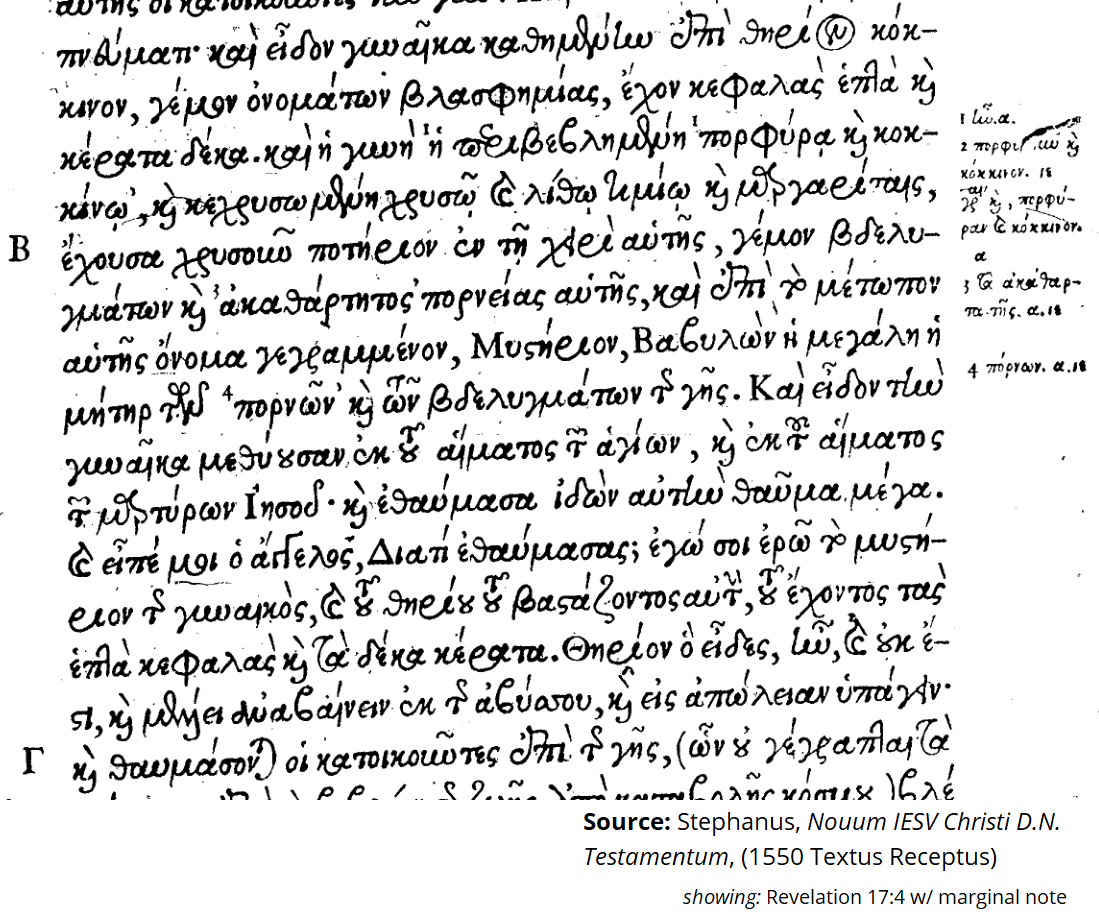 αὐτῆς οἱ κατοικοῦντες
πνεύματι· καὶ εἶδον γυναῖκα καθημένην ἐπὶ θηρίον κόκ-
κινον, γέμον ὀνομάτων βλασφημίας, ἔχον κεφαλὰς ἑπτὰ καὶ
κέρατα δέκα. καὶ ἡ γυνὴ ἡ περιβεβλημένη πορφύρᾳ καὶ κοκ-
κίνῳ, καὶ κεχρυσωμένη χρυσῷ καὶ λίθῳ τιμίῳ καὶ μαργαρίταις,
Β ἔχουσα χρυσοῦν ποτήριον ἐν τῇ χειρὶ αὑτῆς, γέμον βδελυ-
γμάτων καὶ ³ἀκαθάρτητος πορνείας αὑτῆς, καὶ ἐπὶ τὸ μέτωπον
αὑτῆς ὄνομα γεγραμμένον, Μυστήριον, Βαβυλὼν ἡ μεγάλη ἡ
μήτηρ τῶν ⁴πορνῶν καὶ τῶν βδελυγμάτων τῆς γῆς. Καὶ εἶδον τὴν
γυναῖκα μεθύουσαν ἐκ τοῦ αἵματος τῶν ἁγίων, καὶ ἐκ τοῦ αἵματος
τῶν μαρτύρων Ἰησοῦ· καὶ ἐθαύμασα ἰδὼν αὐτὴν θαῦμα μέγα.
καὶ εἶπέ μοι ὁ ἄγγελος, Διατί ἐθαύμασας; ἐγώ σοι ἐρῶ τὸ μυστή-
ριον τῆς γυναικὸς, καὶ τοῦ θηρίου τοῦ βαστάζοντος αὐτὴν, τοῦ ἔχοντος τὰς
ἑπτὰ κεφαλὰς καὶ τὰ δέκα κέρατα. Θηρίον ὃ εἶδες, ἦν, καὶ οὐκ ἔ-
στι, καὶ μέλλει ἀναβαίνειν ἐκ τῆς ἀβύσσου, καὶ εἰς ἀπώλειαν ὑπάγειν·
Γ καὶ θαυμάσονται οἱ κατοικοῦντες ἐπὶ τῆς γῆς, (ὧν οὐ γέγραπται τὰ
1 ἦν. α.
2 καὶ
κόκκινον. ιε
καὶ, πορφύ-
ραν καὶ κόκκινον.
α
3 τὰ ἀκάθαρ-
τα τῆς. α. ιε
4 πόρνων. α. ιε
Source: Stephanus, Nouum IESV Christi D.N.
Testamentum, (1550 Textus Receptus)
showing: Revelation 17:4 w/ marginal note